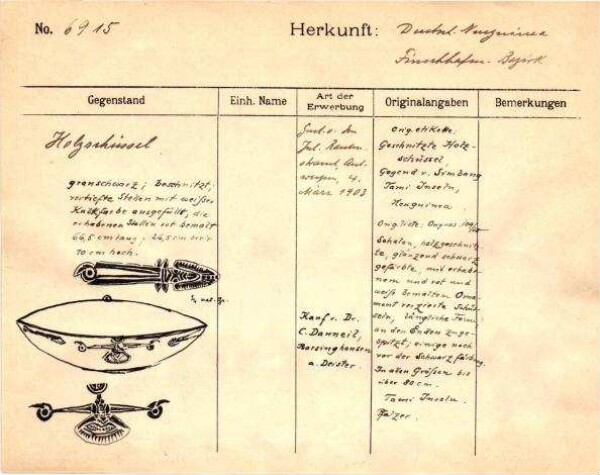 No. 6915
Herkunft: Deutsch. Neuguinea
Finschhafen-Bezirk
Gegenstand
Einh. Name
Art der
Erwerbung
Originalangaben
Bemerkungen
Holzschüssel
grauschwarz; beschnitzt;
vertiefte Stellen mit weißer
Kalkfarbe ausgefüllt, die
erhabenen Stellen rot bemalt
66,5 cm lang, 26,5 cm breit
10 cm hoch.
nat. Gr.
4.
März 1903
Kauf v. Dr.
C. Danneil,
Barsinghausen
a. Deister.
Orig. etikette:
Geschnitzte Holz-
schüssel,
Gegend v. Simbang
Tami Inseln,
Neuguinea.
Orig. liste:
Schalen, holzgeschnitz-
te, glänzend schwarz
gefärbte, mit erhabe-
nem und rot und
weiß bemalten Orna-
ment verzierte Schüs-
seln, längliche Form
an den Enden zuge-
spitzt; einige noch
vor der Schwarzfärbung.
In allen Größen bis
über 80 cm.
Tami Inseln.